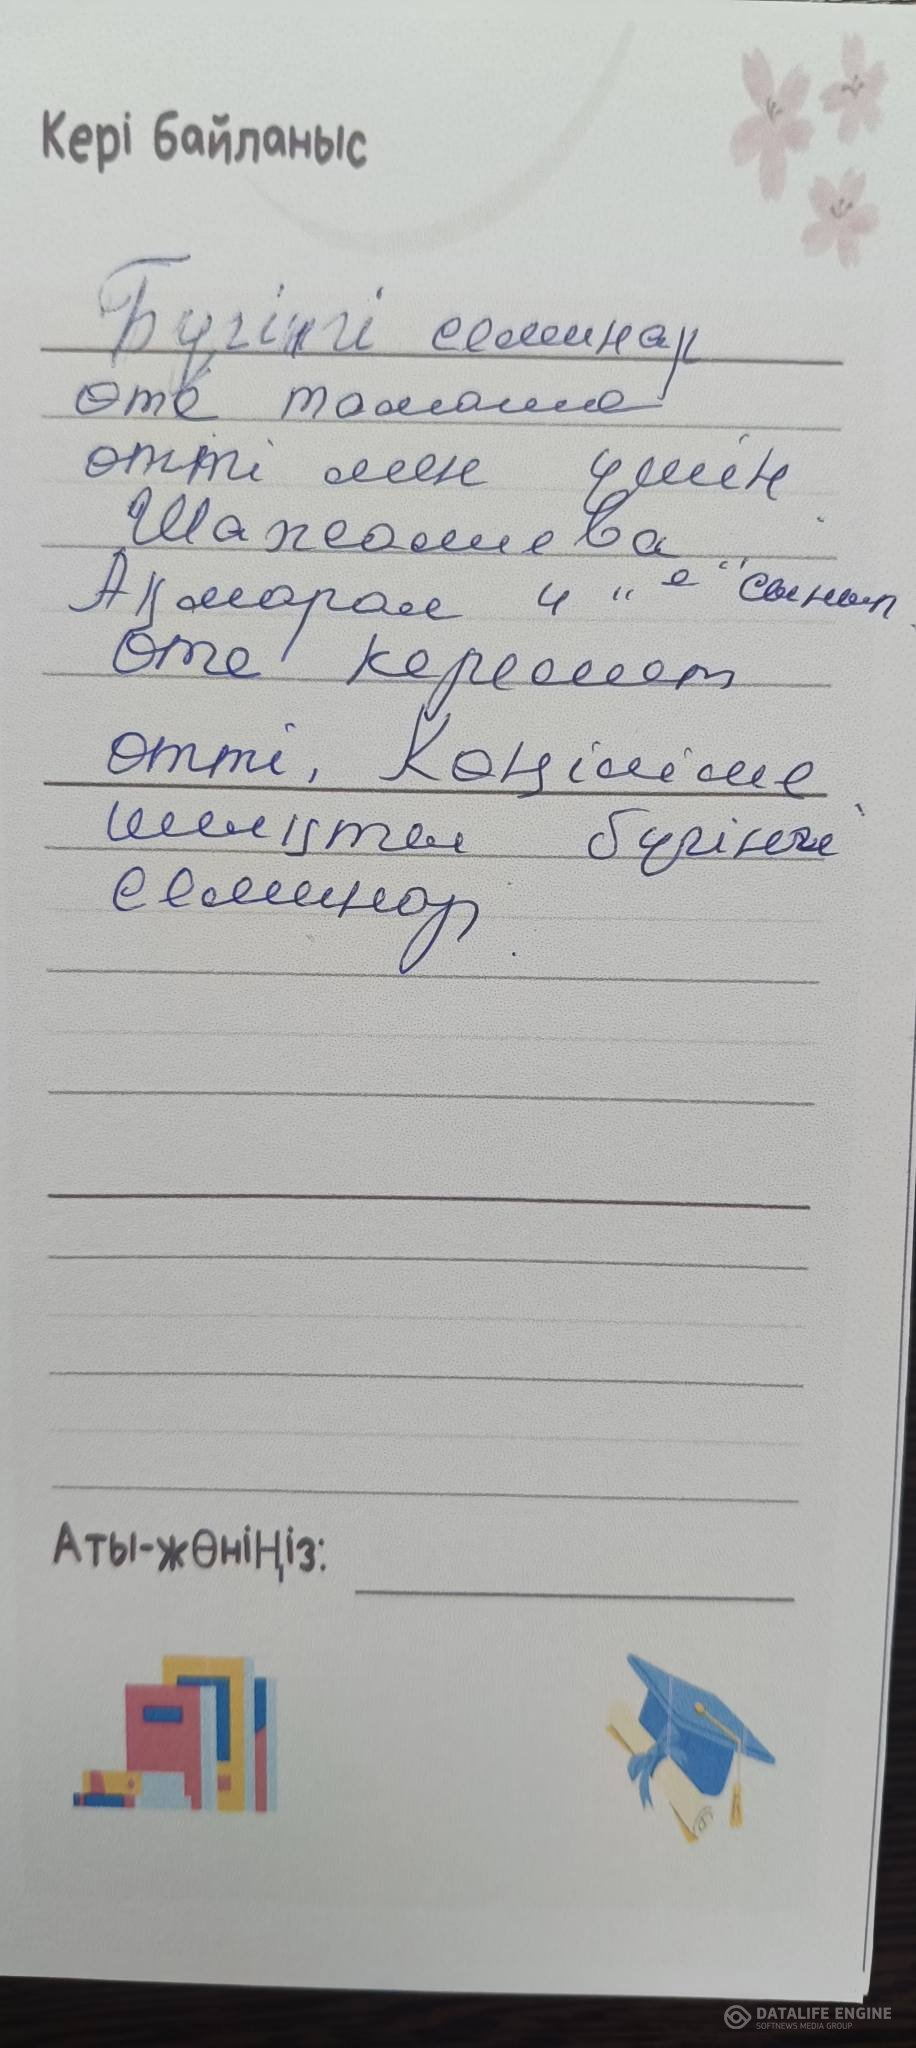 Кері байланыс
Бүгінгі семинар
өте тамаша
өтті мен үшін
Шажамиева
Ақмарал 4 "е" сынып
Өте керемет
өтті, Көңіліме
бүгінгі
семинар.
Аты-жөніңіз:
DATALIFE ENGINE
SOFTNEWS MEDIA GROUP